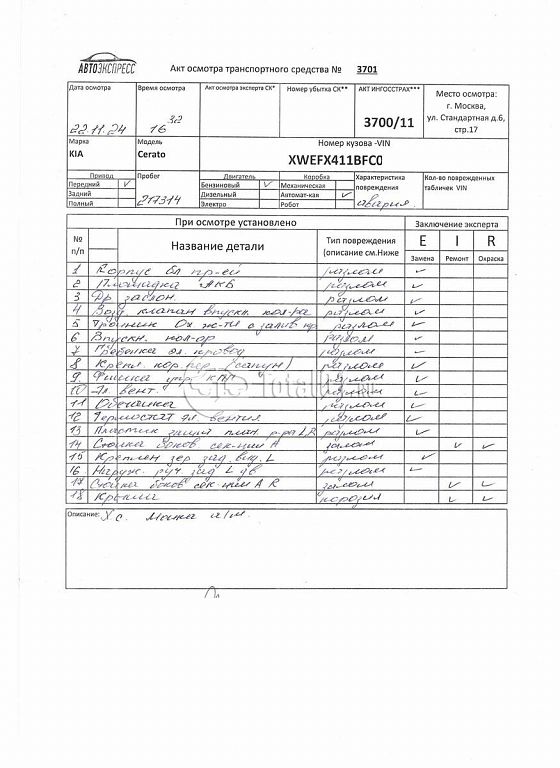 АВТОЭКСПРЕСС
Акт осмотра транспортного средства № 3701
Дата осмотра
22.11.24
Время осмотра
16 32
Акт осмотра эксперта СК*
Номер убытка СК**
АКТ ИНГОССТРАХ***
3700/11
Место осмотра:
г. Москва,
ул. Стандартная д.6,
стр.17
Марка
KIA
Модель
Cerato
Номер кузова -VIN
XWEFX411BFC0
Привод
Передний ✓
Задний
Полный
Пробег
217314
Двигатель
Бензиновый ✓
Дизельный
Электро
Коробка
Механическая
Автомат-кая ✓
Робот
Характеристика
повреждения
авария
Кол-во поврежденных
табличек VIN
При осмотре установлено
Заключение эксперта
№
п/п
Название детали
Тип повреждения
(описание см.Ниже
E I R
Замена Ремонт Окраска
1 Корпус бл пр-ей разлом ✓
2 Площадка АКБ разлом ✓
3 Др заслон. разлом ✓
4 Возд клапан впускн. кол-ра разлом ✓
5 Тройник Ох ж-ти разлом ✓
6 Впускн. кол-ор разлом ✓
7 эл. провод разлом
8 Крепл. кор. (сапун) разлом ✓
9 Фишка упр. КПП разлом ✓
10 Эл вент разлом ✓
11 Обечайка разлом ✓
12 Термостат эл. вентил разлом ✓
13 Пластик L R разлом ✓
14 Стойка боков сек-ции А залом ✓ ✓
15 Креплен зер зад вид. L разлом ✓
16 Наруж. руч. зад L дв разлом ✓
17 Стойка боков сек-ции А R залом ✓ ✓
18 Крыша ✓ ✓
Описание: Х.с. Мойка а/м.
Total